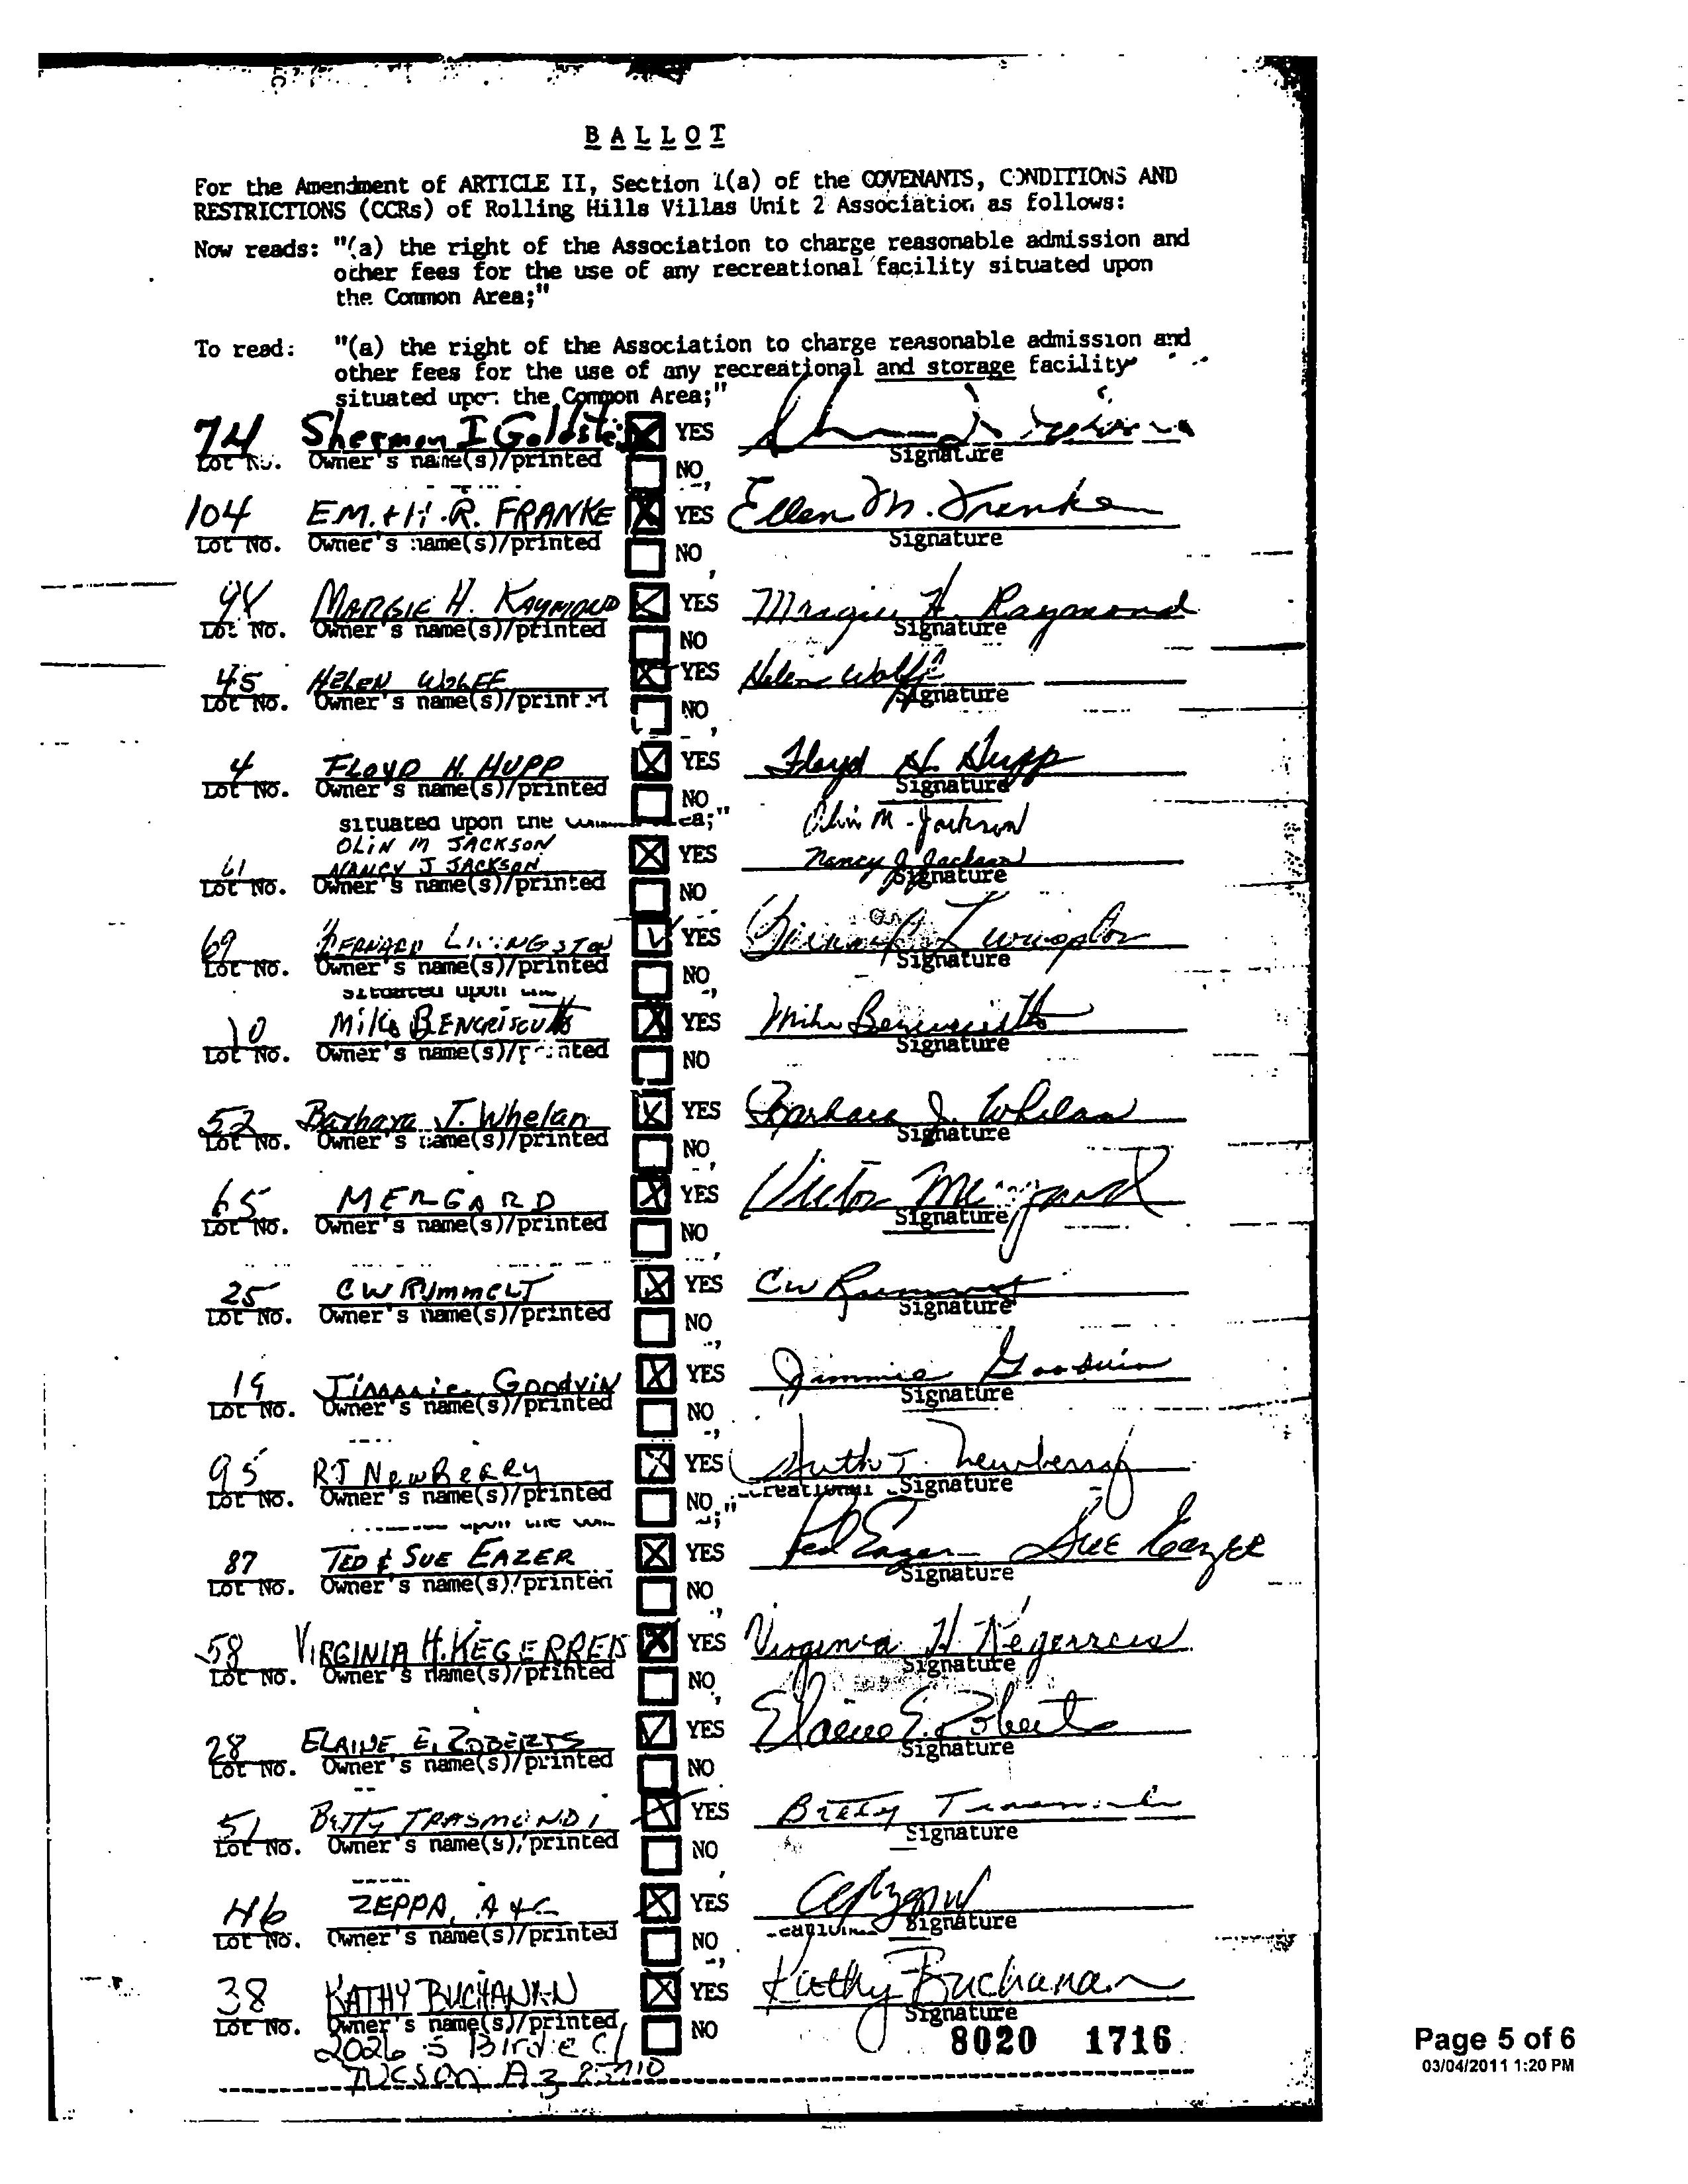 BALLOT
For the Amendment of ARTICLE II, Section 1(a) of the COVENANTS, CONDITIONS AND
RESTRICTIONS (CCRs) of Rolling Hills Villas Unit 2 Association as follows:
Now reads: "(a) the right of the Association to charge reasonable admission and
other fees for the use of any recreational facility situated upon
the Common Area;"
To read: "(a) the right of the Association to charge reasonable admission and
other fees for the use of any recreational and storage facility
situated upon the Common Area;"
74 Sherman I Goldste YES
Lot No. Owner's name(s)/printed Signature
NO
104 E.M. + H.R. FRANKE YES Ellen M. Franke
Lot No. Owner's name(s)/printed Signature
NO
MARGIE H. RAYMOND YES Margie H. Raymond
Lot No. Owner's name(s)/printed Signature
NO
45 HELEN WOLFF YES Helen Wolff
Lot No. Owner's name(s)/printed Signature
NO
4 FLOYD H. HUPP YES Floyd H. Hupp
Lot No. Owner's name(s)/printed Signature
NO
situated upon the ea;" Olin M. Jackson
OLIN M JACKSON
61 NANCY J JACKSON YES Nancy J Jackson
Lot No. Owner's name(s)/printed Signature
NO
69 BERNARD LIVINGSTON YES
Lot No. Owner's name(s)/printed Signature
NO
situated upon
10 Mike YES Mike
Lot No. Owner's name(s)/printed Signature
NO
52 Barbara J. Whelan YES Barbara J. Whelan
Lot No. Owner's name(s)/printed Signature
NO
65 MERGARD YES Victor Mergard
Lot No. Owner's name(s)/printed Signature
NO
25 CW RUMMELT YES CW
Lot No. Owner's name(s)/printed Signature
NO
19 Jimmie Goodwin YES Jimmie Goodwin
Lot No. Owner's name(s)/printed Signature
NO
95 RJ NewBerry YES Ruth J. Newberry
Lot No. Owner's name(s)/printed Signature
NO
87 TED & SUE EAZER YES Ted Eazer Sue Eazer
Lot No. Owner's name(s)/printed Signature
NO
58 VIRGINIA H. KEGERREIS YES Virginia H. Kegerreis
Lot No. Owner's name(s)/printed Signature
NO
28 ELAINE E. ROBERTS YES Elaine E. Roberts
Lot No. Owner's name(s)/printed Signature
NO
51 BETTY TRASMONDI YES Betty
Lot No. Owner's name(s)/printed Signature
NO
46 ZEPPA, A & C YES
Lot No. Owner's name(s)/printed Signature
NO
38 KATHY BUCHANAN YES Kathy Buchanan
Lot No. Owner's name(s)/printed Signature
NO
2026 S Birdie Ct 8020 1716
TUCSON Az 85710
Page 5 of 6
03/04/2011 1:20 PM